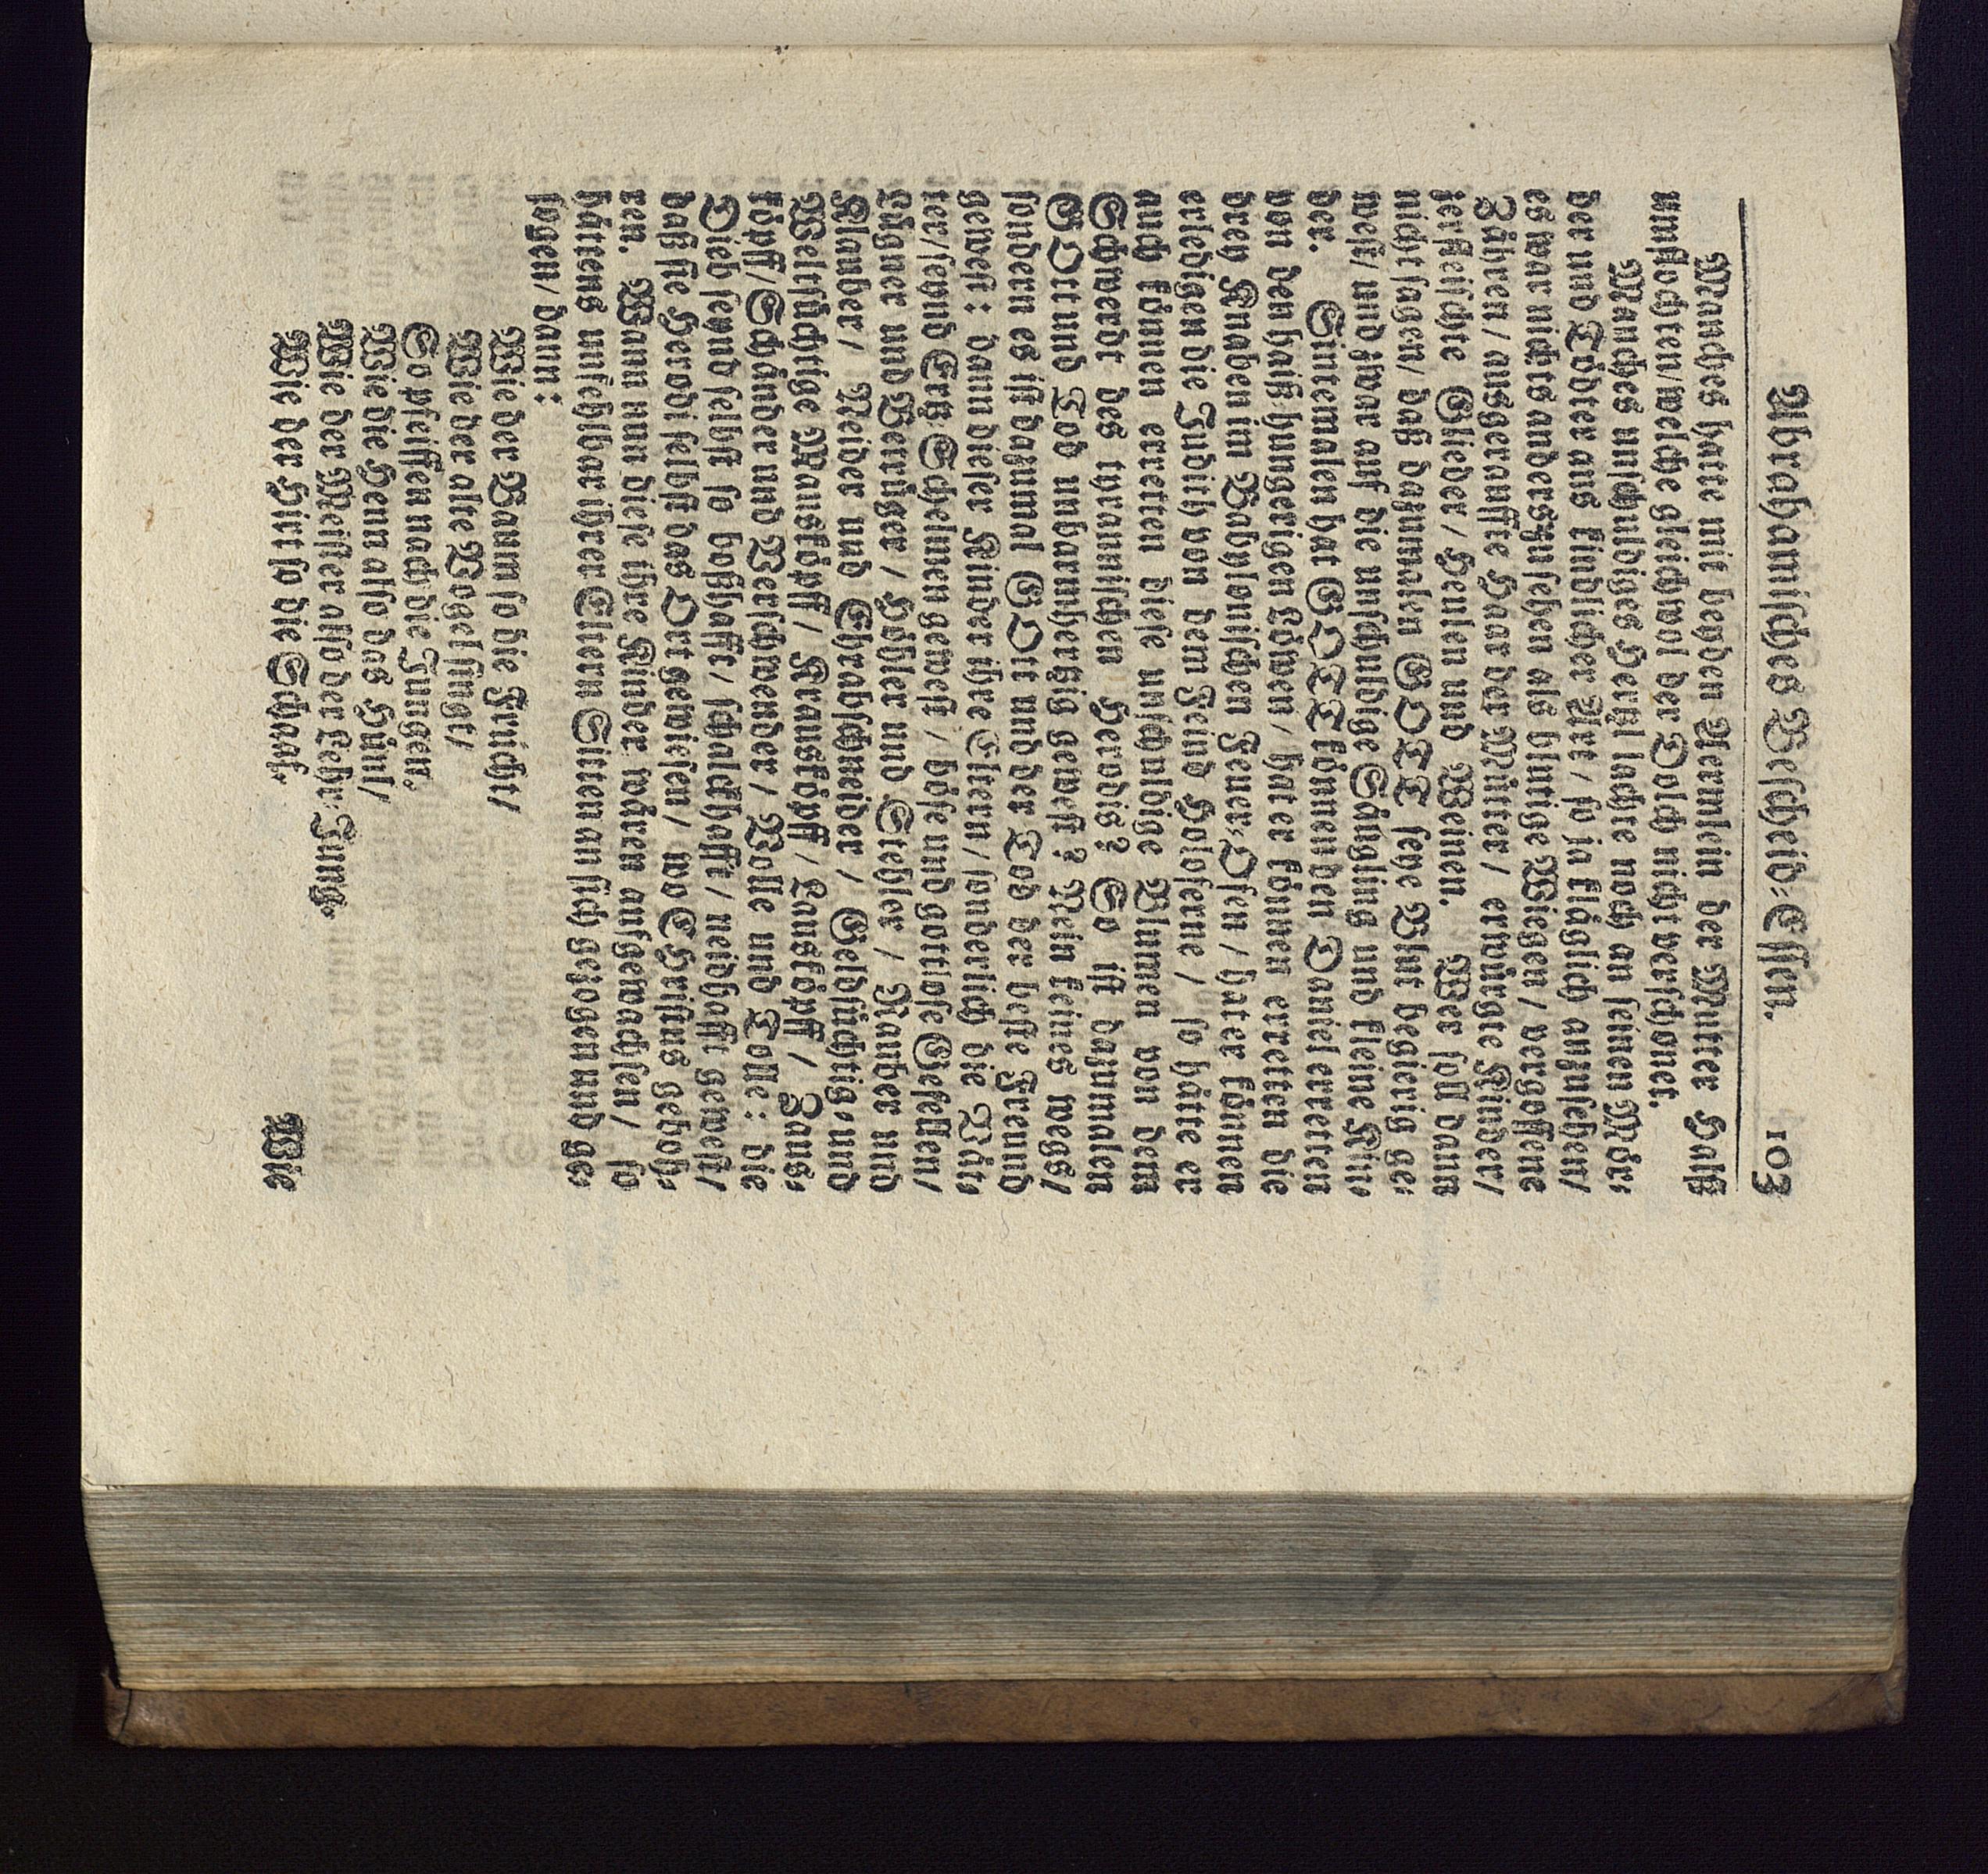 Abrahamisches Bescheid-Essen. 103
Manches hatte mit beyden Aermlein der Mutter Halß
umflochten/ welche gleichwol der Dolch nicht verschonet.
Manches unschuldiges Hertzl lachte noch an seinen Mör-
der und Tödter aus kindlicher Art/ so ja kläglich anzusehen/
es war nichts anders zu sehen als blutige Wiegen/ vergossene
Zähren/ ausgerauffte Haar der Mütter/ erwürgte Kinder/
zerfleischte Glieder/ Heulen und Weinen. Wer soll dann
nicht sagen/ daß dazumalen GOTT seye Blut begierig ge-
west/ und zwar auf die unschuldige Säugling und kleine Kin-
der. Sintemalen hat GOTT können den Daniel erretten
von den haiß hungerigen Löwen/ hat er können erretten die
drey Knaben im Babylonischen Feuer-Ofen/ hat er können
erledigen die Judith von dem Feind Holoferne/ so hätte er
auch können erretten diese unschuldige Blumen von dem
Schwerdt des tyrannischen Herodis? So ist dazumalen
GOtt und Tod unbarmhertzig gewest? Nein keines wegs/
sondern es ist dazumal GOtt und der Tod der beste Freund
gewest: dann dieser Kinder ihre Eltern/ sonderlich die Vät-
ter/ seynd Ertz-Schelmen gewest/ böse und gottlose Gesellen/
Lügner und Betrüger/ Höhler und Stehler/ Rauber und
Klauber/ Neider und Ehrabschneider/ Geldsüchtig- und
Weltsüchtige Mausköpff/ Krausköpff/ Lausköpff/ Saus-
köpff/ Schänder und Verschwender/ Volle und Tolle: die
Dieb seynd selbst so boßhafft/ schalckhafft/ neidhafft gewest/
daß sie Herodi selbst das Ort gewiesen/ wo CHristus geboh-
ren. Wann nun diese ihre Kinder wären aufgewachsen/ so
hättens unfehlbar ihrer Eltern Sitten an sich gezogen und ge-
sogen/ dann:
Wie der Baum so die Frücht/
Wie der alte Vogel singt/
So pfeiffen nach die Jungen.
Wie die Henn also das Hünl/
Wie der Meister also der Lehr-Jung.
Wie der Hirt so die Schaaf.
Wie